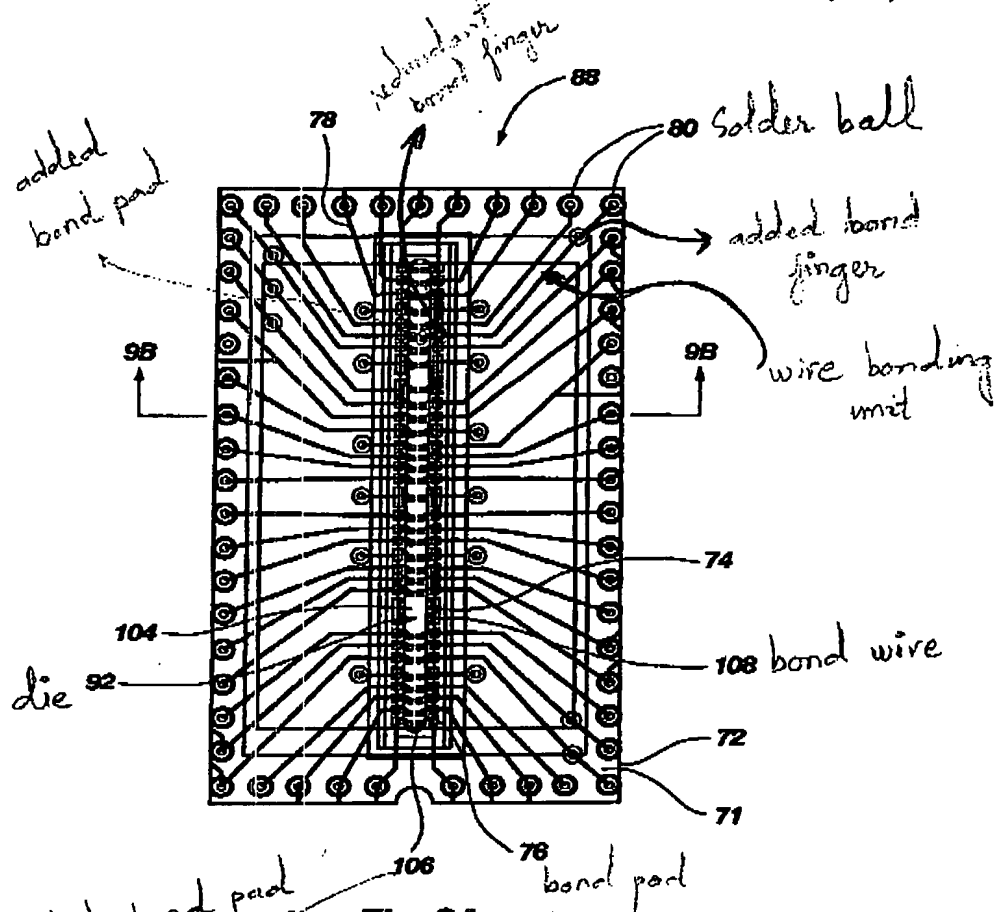 redundant
bond finger
88
78
80 Solder ball
added
bond pad
added bond
finger
9B
9B
wire bonding
unit
74
104
108 bond wire
die 92
72
71
106
76
bond pad
pad